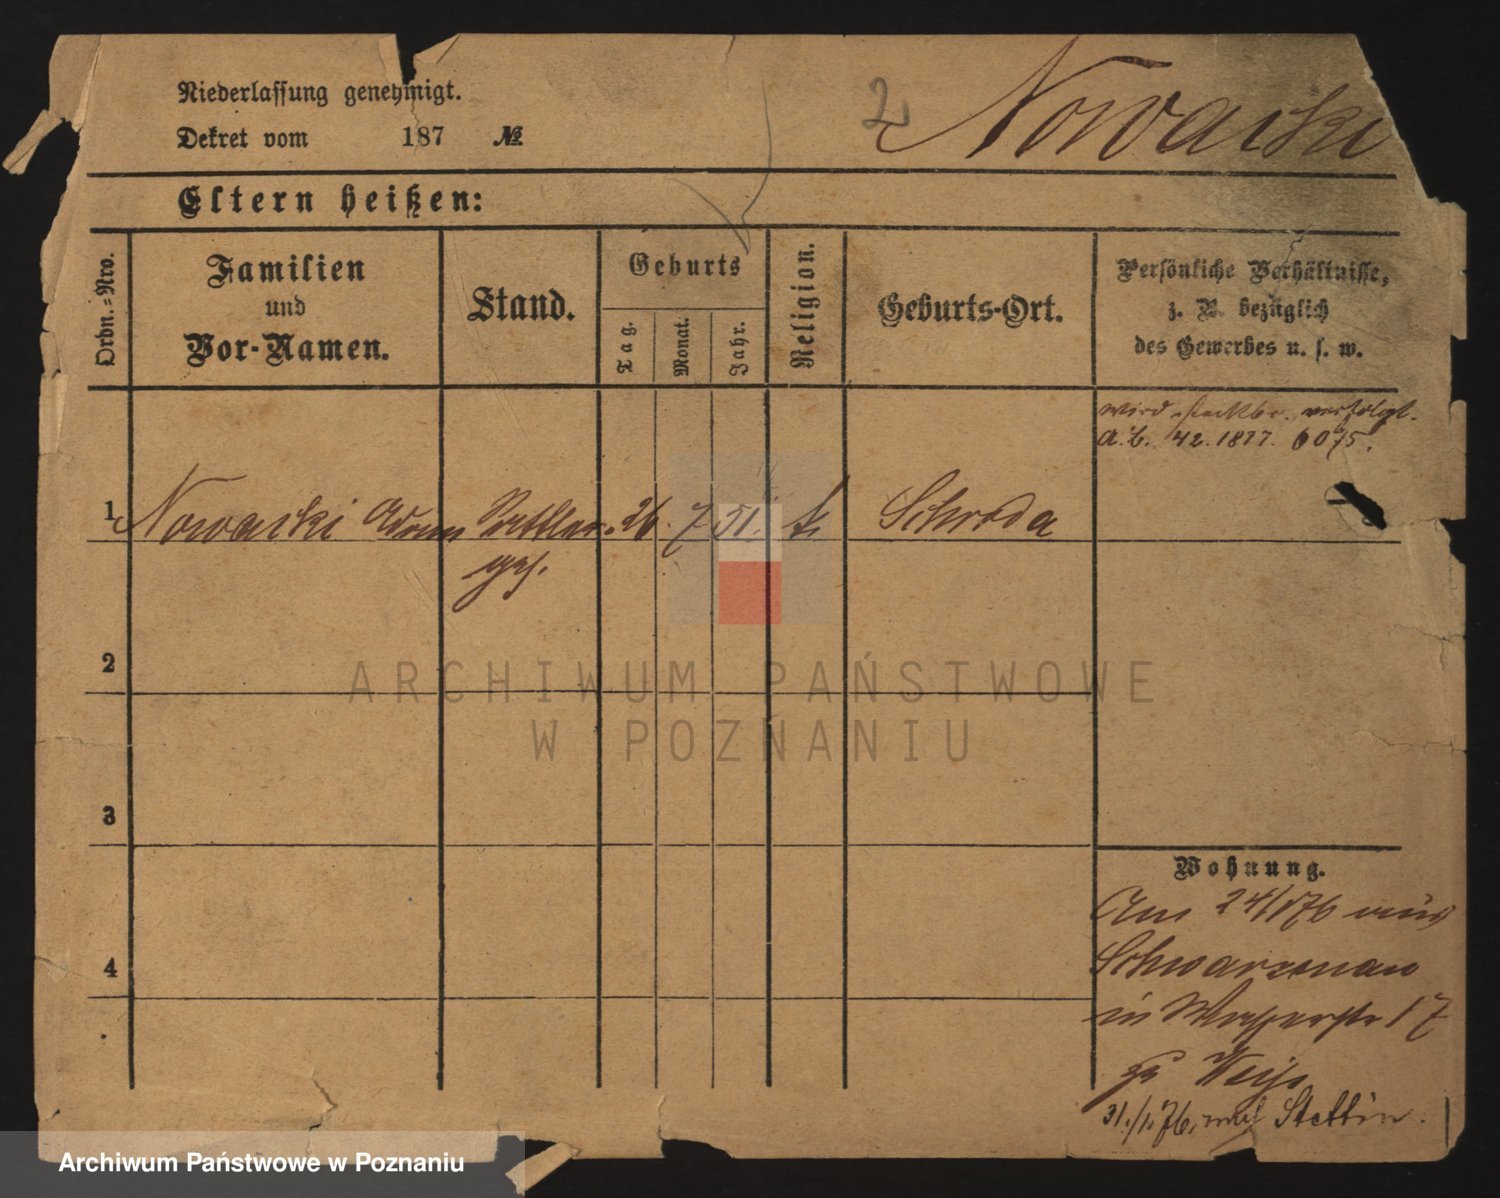 Niederlassung genehmigt.
Dekret vom 187 №
2
Nowacki
Eltern heißen:
Ordn.-Nro.
Familien
und
Vor-Namen.
Stand.
Geburts
Tag.
Monat.
Jahr.
Religion.
Geburts-Ort.
Persönliche Verhältnisse,
z. B. bezüglich
des Gewerbes u. s. w.
wird steckbr. verfolgt.
A. B. 42. 1877. 6075.
1 Nowacki Adam Sattler 26 7 51. k. Schroda
ges.
2
3
4
Wohnung.
Am 24/1 76 aus
Schwarzenau
in Wasserstr 17
zu
31./1. 76. nach Stettin.
ARCHIWUM PAŃSTWOWE
W POZNANIU
Archiwum Państwowe w Poznaniu